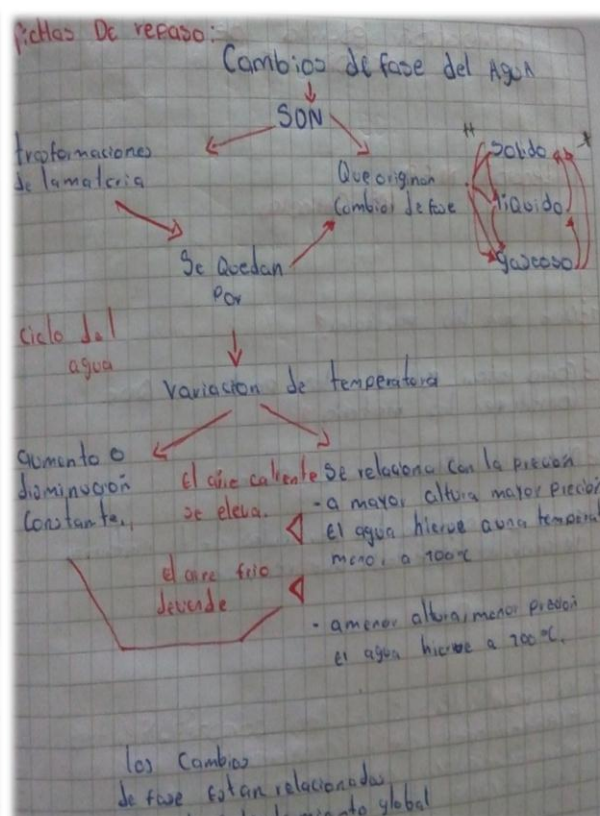 fichas De repaso:
Cambios de fase del AguA
SON
trasformaciones
de la materia
Que originan
Cambios de fase
solido
liquido
gaseoso
Se Quedan
Por
Ciclo del
agua
Variacion de temperatura
aumento o
disminución
Constante.
El aire caliente
se eleva.
el aire frio
Se relaciona con la precion
- a mayor altura mayor precion
El agua hierve a una
menor a 100°C
- a menor altura, menor precion
el agua hierve a 100 °C.
los Cambios
de fase Estan relacionados
global